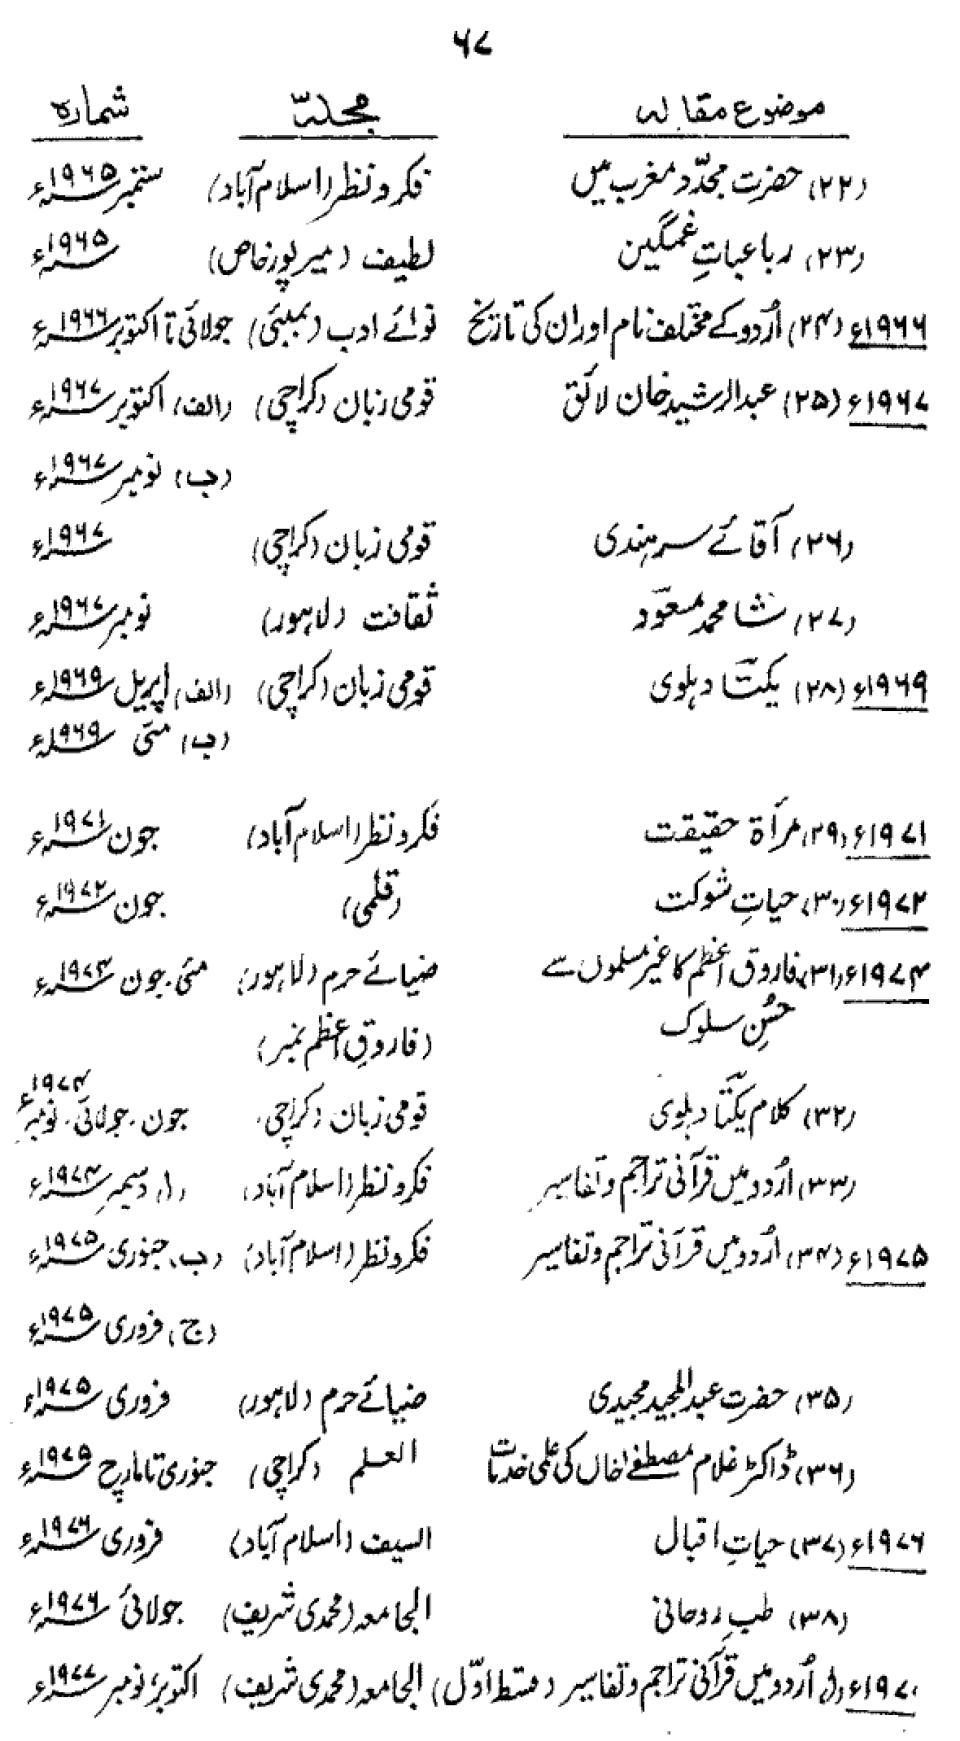 ۶۷
موضوع مقالہ مجلہ شمارہ
(۲۲) حضرت مجدّد مغرب میں فکر و نظر (اسلام آباد) ستمبر ۱۹۶۵ء
(۲۳) رباعیاتِ غمگین لطیف (میرپور خاص) ۱۹۶۵ء
۱۹۶۶ء (۲۴) اُردو کے مختلف نام اور ان کی تاریخ نوائے ادب (بمبئی) جولائی تا اکتوبر ۱۹۶۶ء
۱۹۶۷ء (۲۵) عبدالرشید خان لائق قومی زبان (کراچی) (الف) اکتوبر ۱۹۶۷ء
(ب) نومبر ۱۹۶۷ء
(۲۶) آقائے سرہندی قومی زبان (کراچی) ۱۹۶۷ء
(۲۷) شاہ محمد مسعود ثقافت (لاہور) نومبر ۱۹۶۷ء
۱۹۶۹ء (۲۸) یکتا دہلوی قومی زبان (کراچی) (الف) اپریل ۱۹۶۹ء
(ب) مئی ۱۹۶۹ء
۱۹۷۱ء (۲۹) مرأۃ حقیقت فکر و نظر (اسلام آباد) جون ۱۹۷۱ء
۱۹۷۲ء (۳۰) حیاتِ شوکت (قلمی) جون ۱۹۷۲ء
۱۹۷۴ء (۳۱) فاروق اعظم کا غیر مسلموں سے ضیائے حرم (لاہور) مئی۔ جون ۱۹۷۴ء
حُسنِ سلوک (فاروقِ اعظم نمبر)
(۳۲) کلام یکتا دہلوی قومی زبان (کراچی) جون۔ جولائی۔ نومبر ۱۹۷۴ء
(۳۳) اُردو میں قرآنی تراجم و تفاسیر فکر و نظر (اسلام آباد) (ا) دسمبر ۱۹۷۴ء
۱۹۷۵ء (۳۴) اُردو میں قرآنی تراجم و تفاسیر فکر و نظر (اسلام آباد) (ب) جنوری ۱۹۷۵ء
(ج) فروری ۱۹۷۵ء
(۳۵) حضرت عبدالمجید مجیدی ضیائے حرم (لاہور) فروری ۱۹۷۵ء
(۳۶) ڈاکٹر غلام مصطفےٰ خاں کی علمی خدمات العلم (کراچی) جنوری تا مارچ ۱۹۷۵ء
۱۹۷۶ء (۳۷) حیاتِ اقبال السیف (اسلام آباد) فروری ۱۹۷۶ء
(۳۸) طبِ روحانی الجامعہ (محمدی شریف) جولائی ۱۹۷۶ء
۱۹۷۷ء (ا) اُردو میں قرآنی تراجم و تفاسیر (قسط اوّل) الجامعہ (محمدی شریف) اکتوبر، نومبر ۱۹۷۷ء